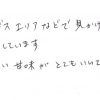 ービスエリアなどで見か
しています
い甘味がとてもいい